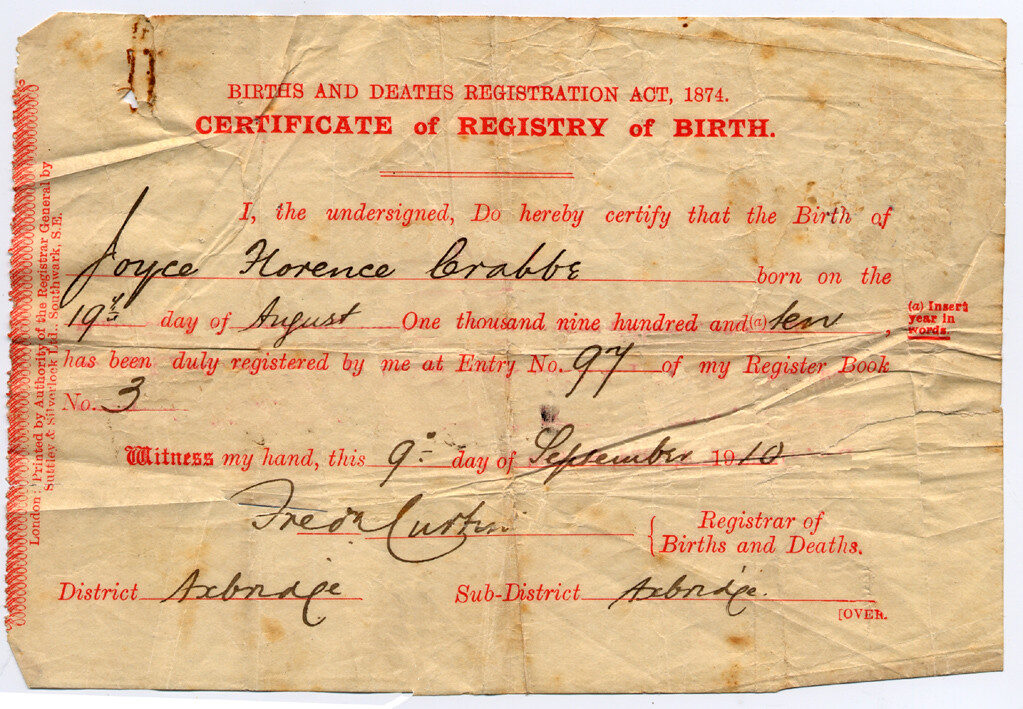 BIRTHS AND DEATHS REGISTRATION ACT, 1874.
CERTIFICATE of REGISTRY of BIRTH.
I, the undersigned, Do hereby certify that the Birth of
Joyce Florence Crabbe born on the
19th day of August One thousand nine hundred and (a) ten,
(a) Insert year in words.
has been duly registered by me at Entry No. 97 of my Register Book
No. 3
Witness my hand, this 9th day of September 1910
Fredk Curtin
Registrar of
Births and Deaths.
District Axbridge Sub-District Axbridge.
[OVER.
London: Printed by Authority of the Registrar General by
Suttley & Silverlock Ltd., Southwark, S.E.